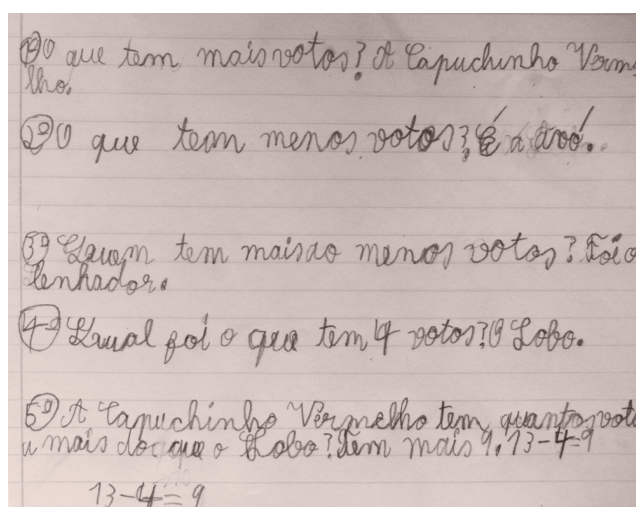 1º O que tem mais votos? A Capuchinho Verme
lho.
2º O que tem menos votos? É a avó.
3º Quem tem mais ou menos votos? Foi o
lenhador.
4º Qual foi o que tem 4 votos? O Lobo.
5º A Capuchinho Vermelho tem quantos voto
a mais do que o Lobo? Tem mais 9. 13-4=9
13-4=9